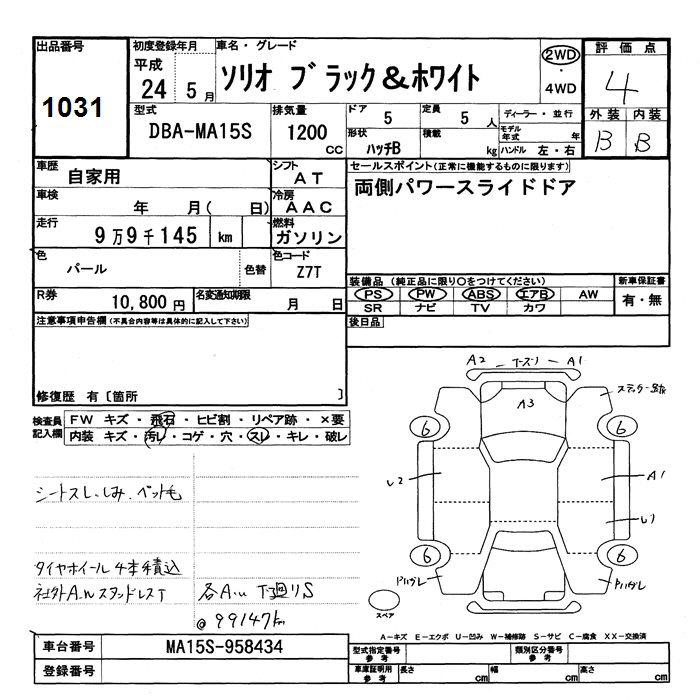 出品番号
1031
初度登録年月
平成
24 5月
車名・グレード
ソリオ ブラック&ホワイト
2WD
・
4WD
評価点
4
外装 内装
B B
型式
DBA-MA15S
排気量
1200
CC
ドア 5
定員 5 人
形状 ハッチB
積載 kg
ディーラー・並行
モデル年式 年
ハンドル 左・右
車歴
自家用
シフト
AT
車検
年 月( 日)
冷房
AAC
走行
9万9千145 km
燃料
ガソリン
色
パール
色替
色コード
Z7T
R券
10,800 円
名変通知期限
月 日
セールスポイント(正常に機能するものに限ります)
両側パワースライドドア
装備品(純正品に限り○をつけてください)
PS PW ABS エアB AW
SR ナビ TV カワ
新車保証書
有・無
後日品
注意事項申告欄(不具合内容等は具体的に記入して下さい)
修復歴 有〔箇所 〕
検査員
記入欄
FW キズ・飛石・ヒビ割・リペア跡・×要
内装 キズ・汚レ・コゲ・穴・スレ・キレ・破レ
シートスレ、しみ、ペット毛
タイヤホイール4本積込
社外A.W スタッドレスT
@99147km
A2 A1
A3
6 6
A1
6 6
スペア
A-キズ E-エクボ U-凹み W-補修跡 S-サビ C-腐食 XX-交換済
車台番号
MA15S-958434
登録番号
型式指定番号
参考
類別区分番号
参考
車庫証明用
参考
長さ cm 幅 cm 高さ cm